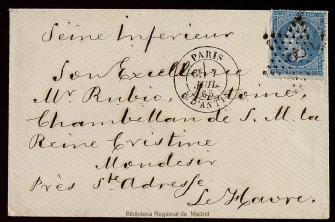 Seine Inferieur
PARIS
JUIL.
65
Son Excellence
Mr Rubio, Antoine,
Chambellan de S. M. la
Reine Cristine
Mondesir
Près Ste Adresse
Le Havre.
Biblioteca Regional de Madrid